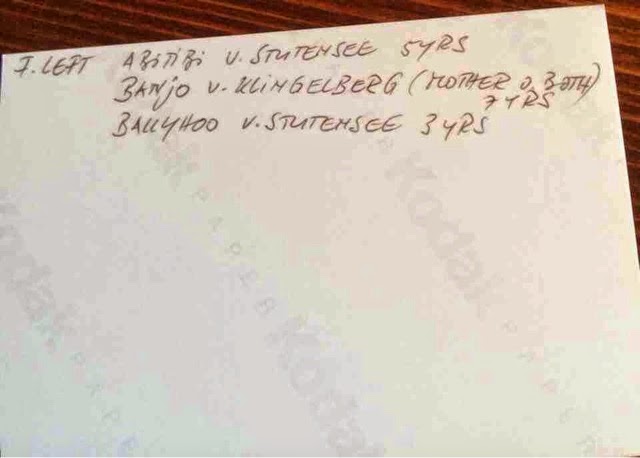 F. LEFT ABITIBI V. STUTENSEE 5 YRS
BANJO V. KLINGELBERG (MOTHER O. BOTH)
7 YRS
BALLYHOO V. STUTENSEE 3 YRS
Kodak
Kodak
Kodak
PAPER